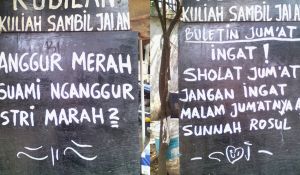 KULIAH SAMBIL JALAN
ANGGUR MERAH
SUAMI NGANGGUR
STRI MARAH?
KULIAH SAMBIL JALAN
BULETIN JUM'AT
INGAT!
SHOLAT JUM'AT
JANGAN INGAT
MALAM JUM'ATNYA
SUNNAH ROSUL